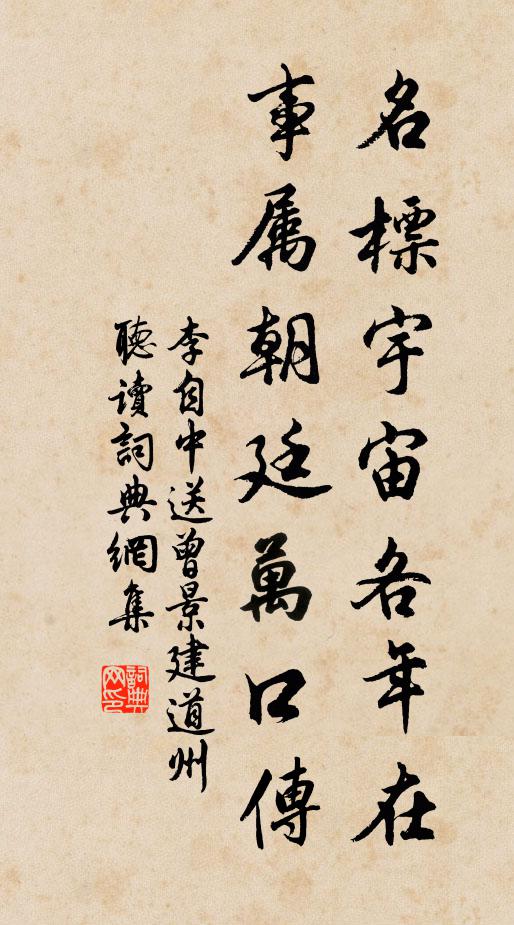 名標宇宙各年在
事属朝廷萬口傳
李自中送曾景建道州
聽讀詞典網集
詞典网印